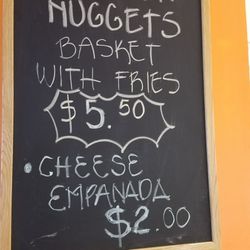 NUGGETS
BASKET
WITH FRIES
$5.50
• CHEESE
EMPANADA
$2.00